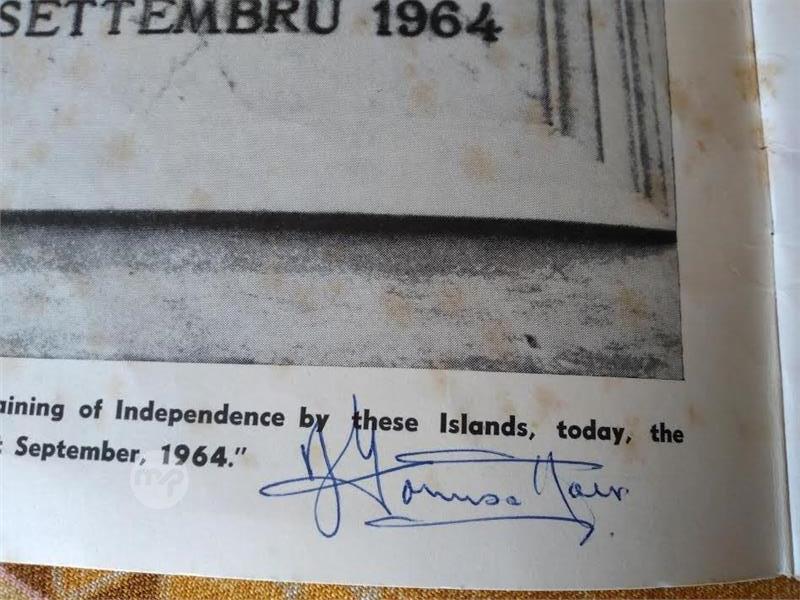 SETTEMBRU 1964
aining of Independence by these Islands, today, the
September, 1964."